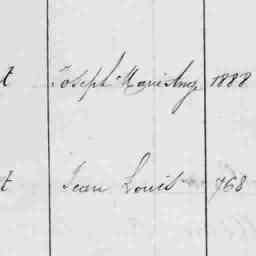 t Joseph Marie Ang 1888
t Jean Louis 768